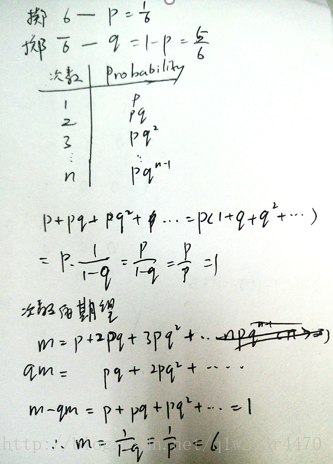 掷 6 — p = 1/6
掷 6̅ — q = 1-p = 5/6
次数 | Probability
1 | p
2 | pq
3 | pq²
⋮ | ⋮
n | pqⁿ⁻¹
p+pq+pq²+ ⋯ = p(1+q+q²+⋯)
= p · 1/(1-q) = p/(1-q) = p/p = 1
次数的期望
m = p+2pq+3pq²+⋯
qm = pq+2pq²+⋯
m-qm = p+pq+pq²+⋯ = 1
∴ m = 1/(1-q) = 1/p = 6